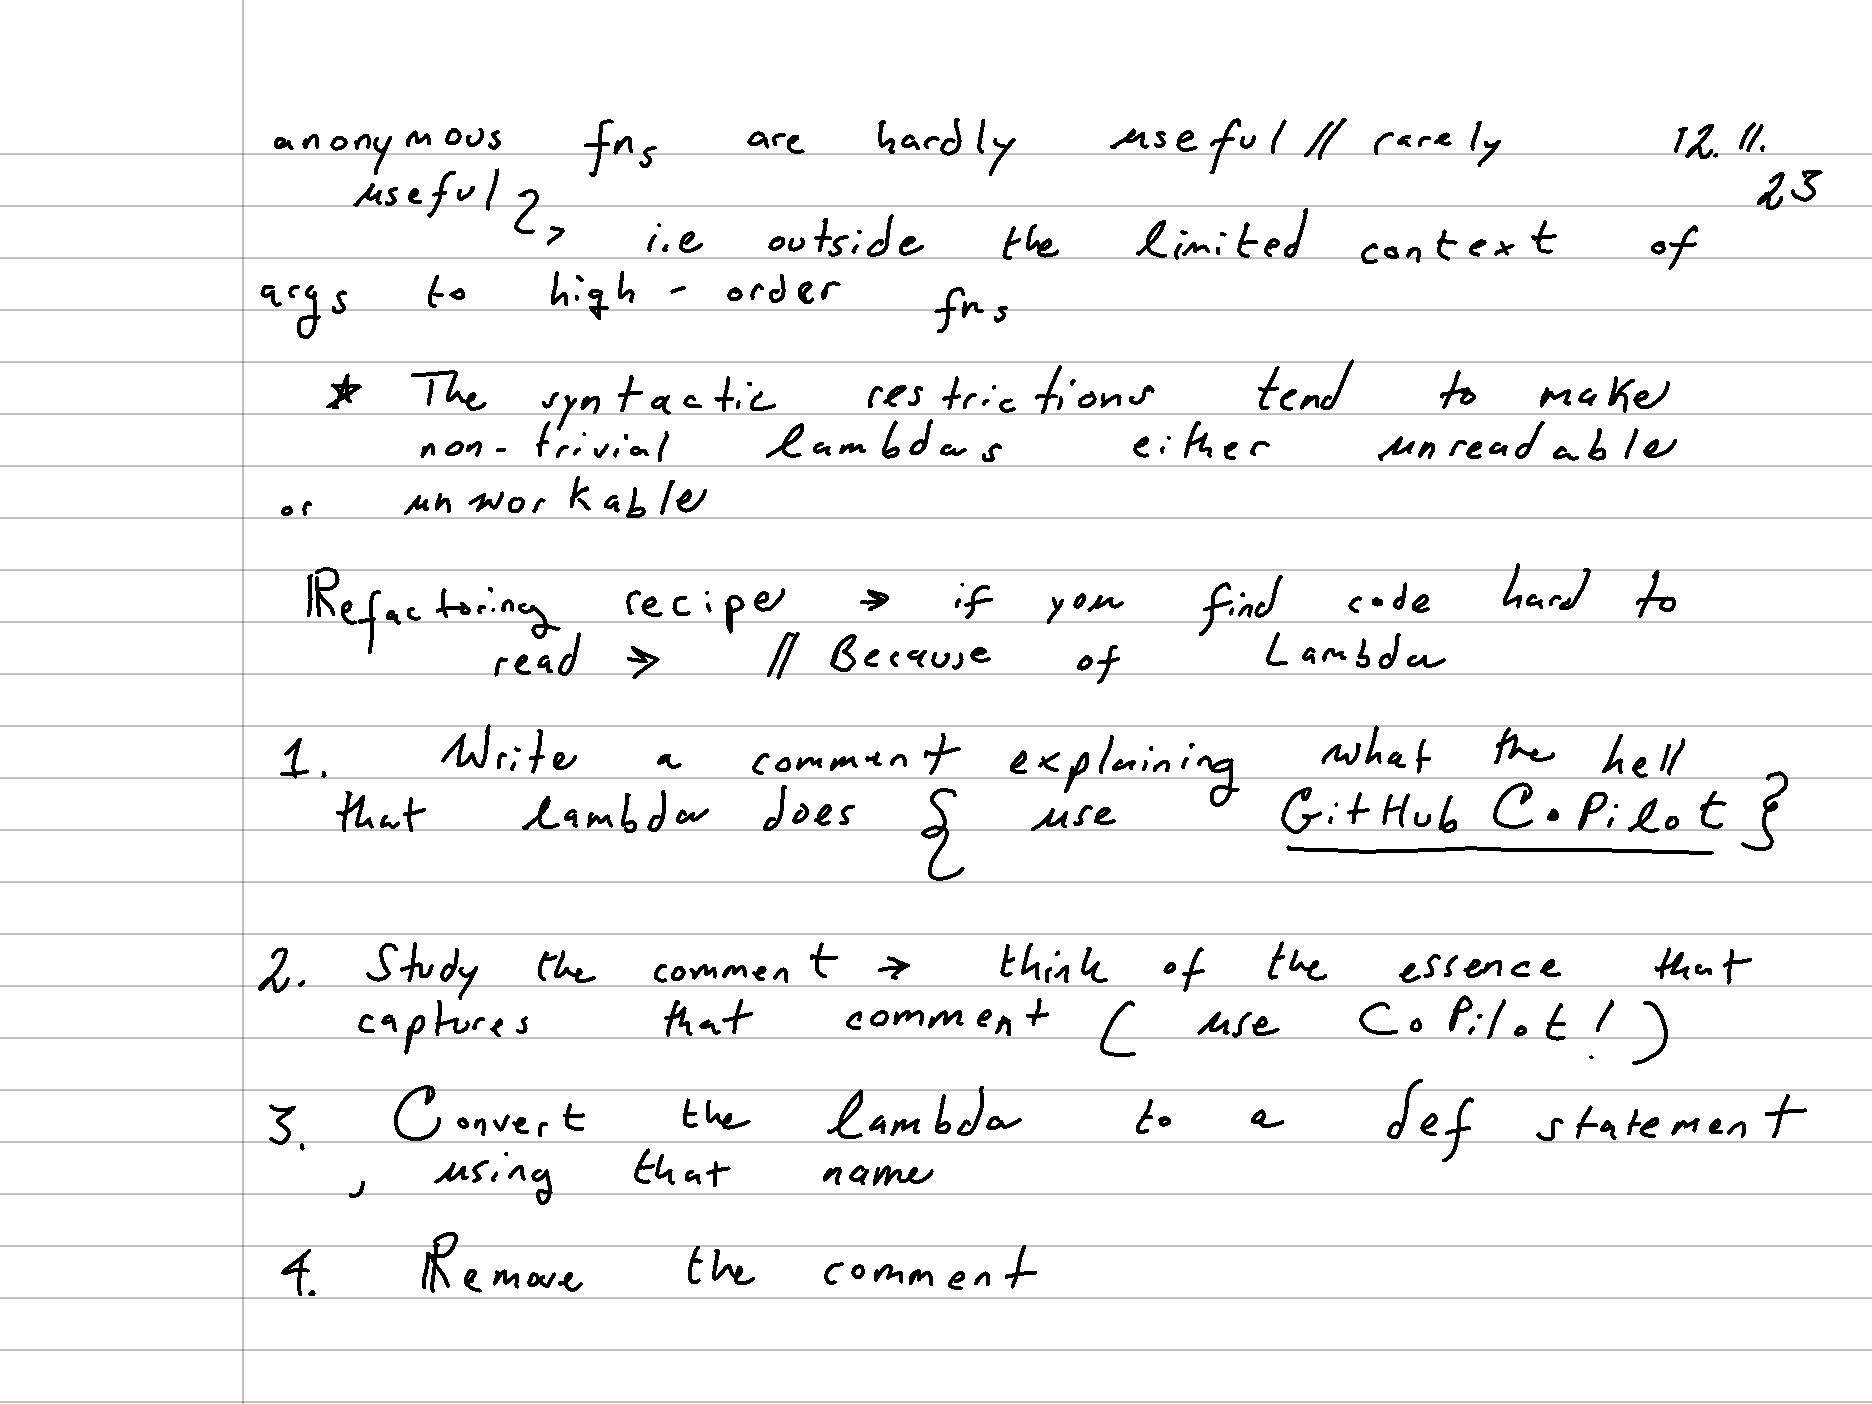 anonymous fns are hardly useful // rarely 12.11.
useful 23
→ i.e outside the limited context of
args to high-order fns
* The syntactic restrictions tend to make
non-trivial lambdas either unreadable
or unworkable
Refactoring recipe → if you find code hard to
read → // Because of Lambda
1. Write a comment explaining what the hell
that lambda does { use GitHub CoPilot }
2. Study the comment → think of the essence that
captures that comment ( use CoPilot! )
3. Convert the lambda to a def statement
, using that name
4. Remove the comment